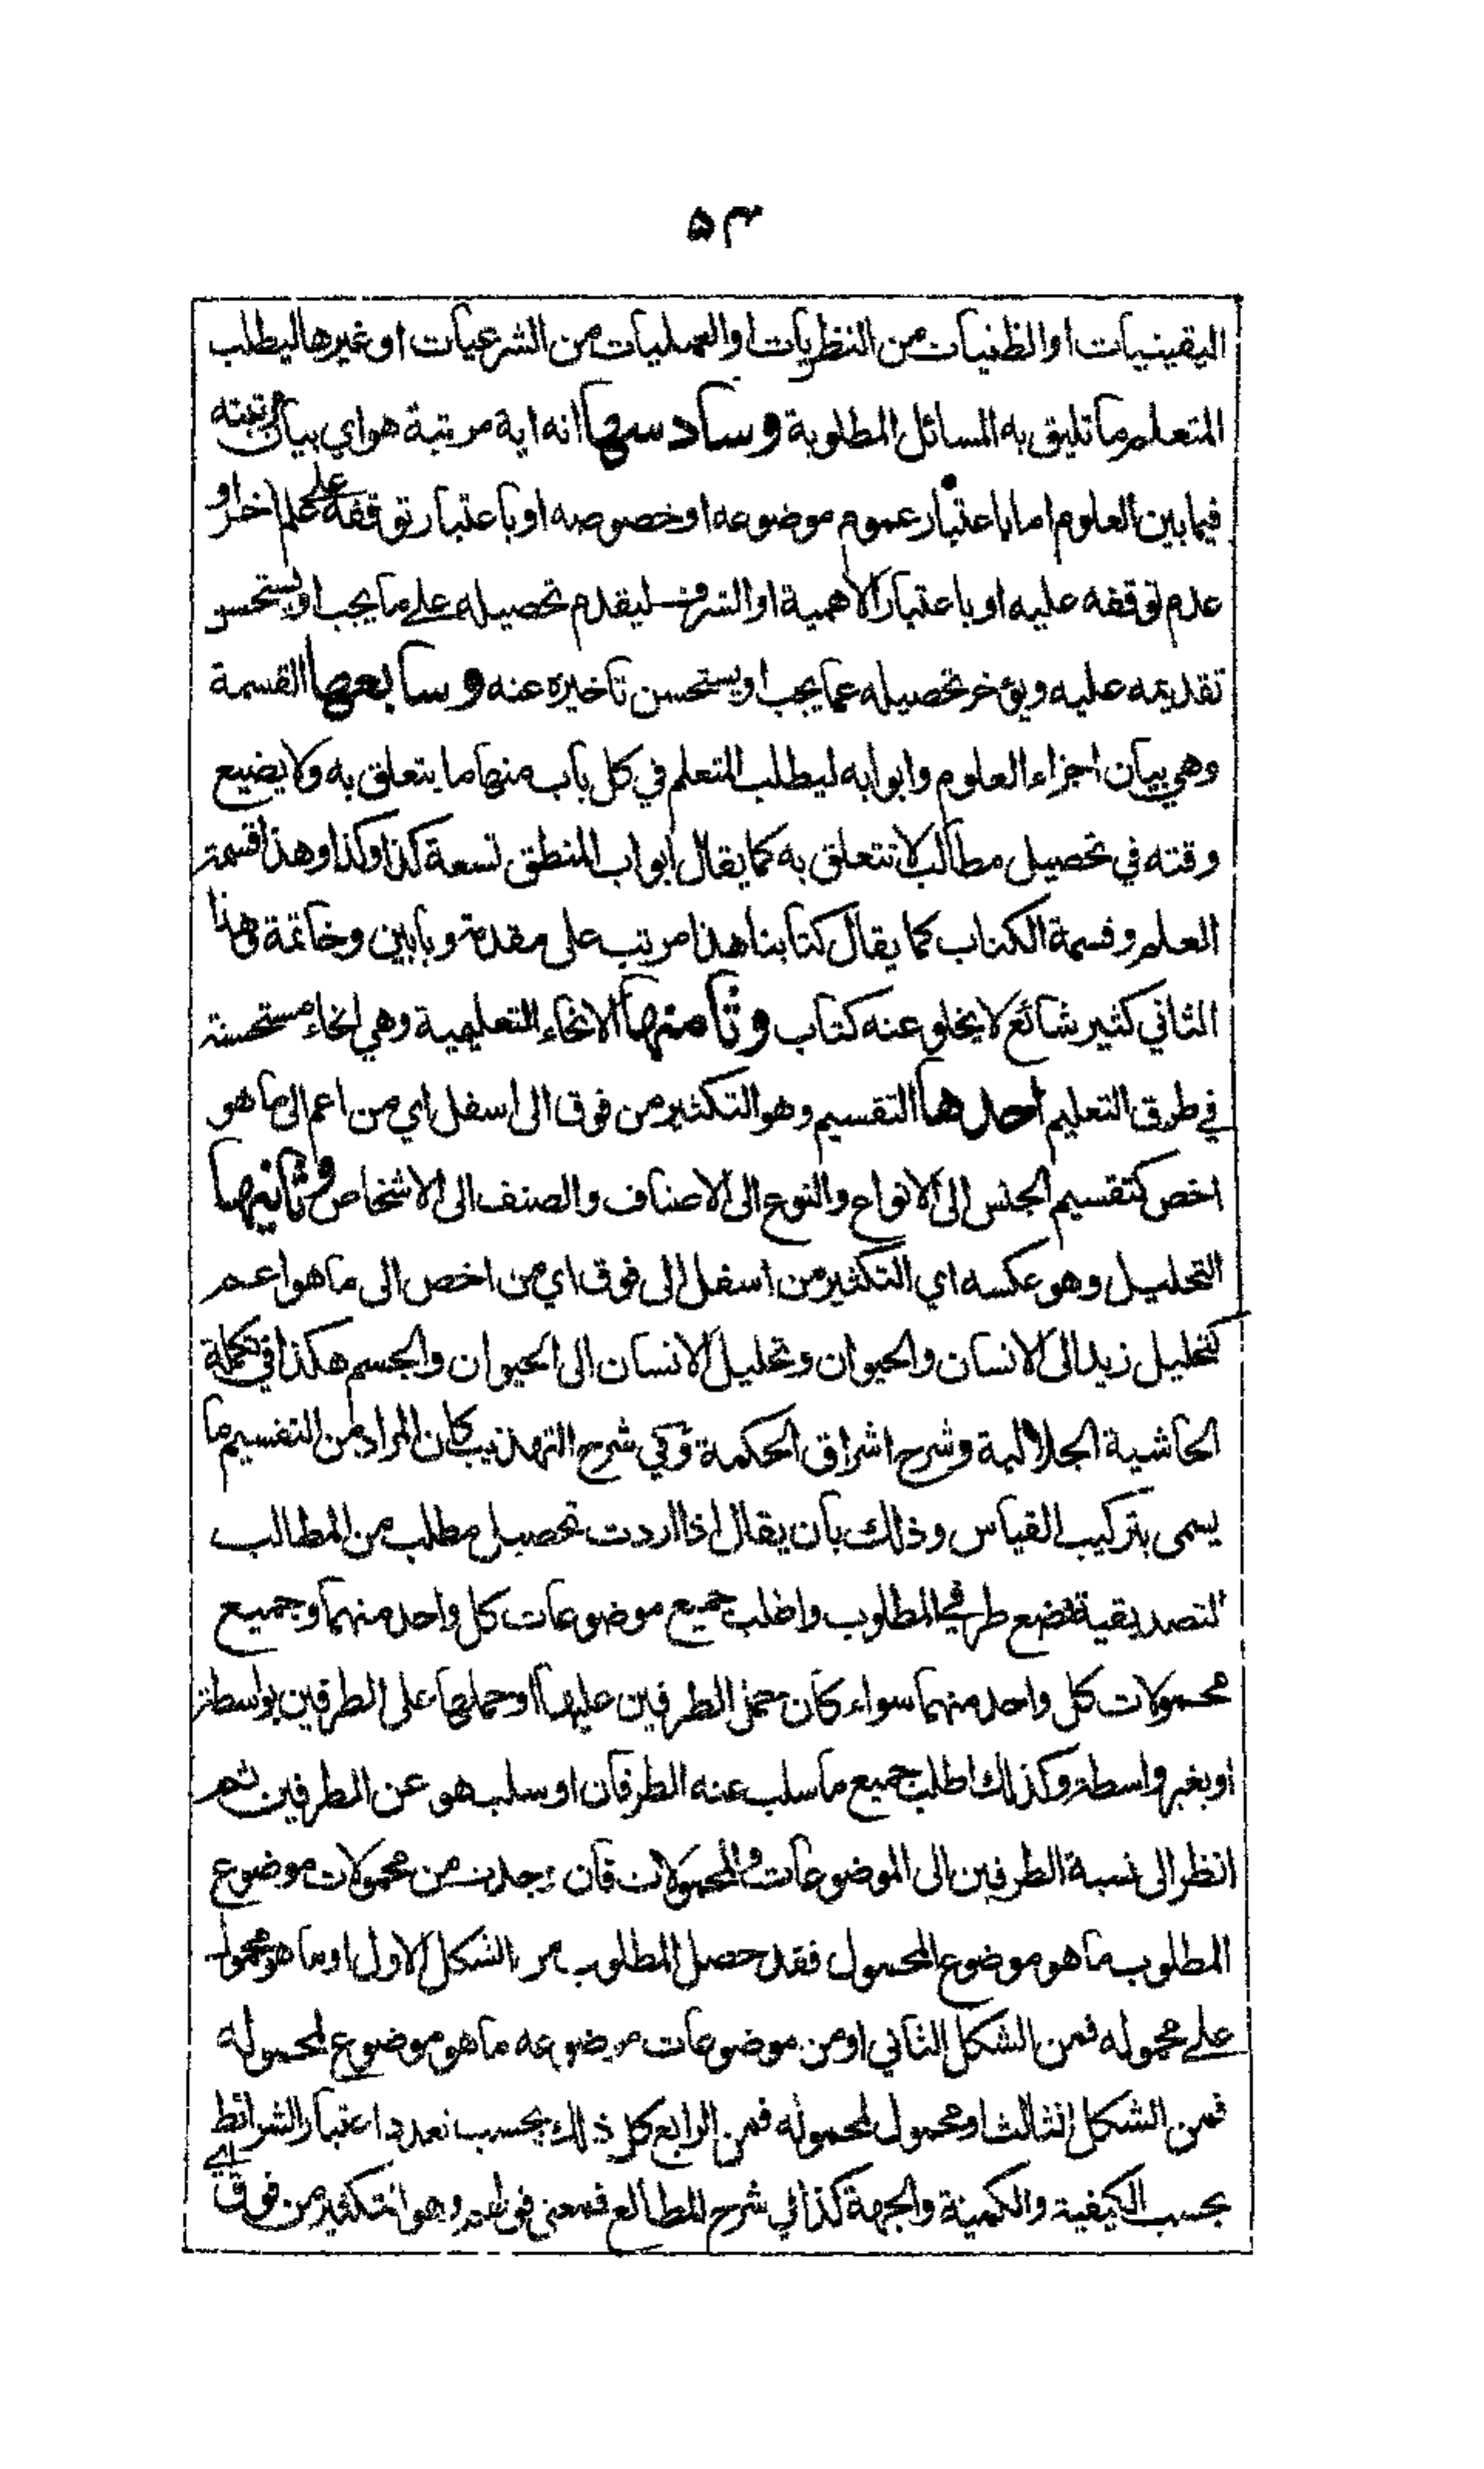 ٥٣
اليقينيات او الظنيات من النظريات او العمليات من الشرعيات او غيرها ليطلب
المتعلم ما تليق به المسائل المطلوبة وسادسها انه اية مرتبة هو اي بيان مرتبته
فيما بين العلوم اما باعتبار عموم موضوعه او خصوصه او باعتبار توقفه على علم اخر او
عدم توقفه عليه او باعتبار الاهمية او الشرف ليقدم تحصيله على ما يجب او يستحسن
تقديمه عليه ويؤخر تحصيله عما يجب او يستحسن تاخيره عنه وسابعها القسمة
وهي بيان اجزاء العلوم وابوابه ليطلب المتعلم في كل باب منها ما يتعلق به ولا يضيع
وقته في تحصيل مطالب لا تتعلق به كما يقال ابواب المنطق تسعة كذا وكذا وهذا قسمة
العلم وقسمة الكتاب كما يقال كتابنا هذا مرتب على مقدمة وبابين وخاتمة وهذا
الثاني كثير شائع لا يخلو عنه كتاب وثامنها الانحاء التعليمية وهي انحاء مستحسنة
في طرق التعليم احدها التقسيم وهو التكثير من فوق الى اسفل اي من اعم الى ما هو
اخص كتقسيم الجنس الى الانواع والنوع الى الاصناف والصنف الى الاشخاص وثانيها
التحليل وهو عكسه اي التكثير من اسفل الى فوق اي من اخص الى ما هو اعم
كتحليل زيد الى الانسان والحيوان وتحليل الانسان الى الحيوان والجسم هكذا في تكملة
الحاشية الجلالية وشرح اشراق الحكمة وفي شرح التهذيب كان المراد من التقسيم ما
يسمى بتركيب القياس وذلك بان يقال اذا اردت تحصيل مطلب من المطالب
التصديقية فضع طرفي المطلوب واطلب جميع موضوعات كل واحد منهما وجميع
محمولات كل واحد منهما سواء كان حمل الطرفين عليها او حملها على الطرفين بواسطة
او بغير واسطة وكذلك اطلب جميع ما سلب عنه الطرفان او سلب هو عن الطرفين ثم
انظر الى نسبة الطرفين الى الموضوعات والمحمولات فان وجدت من محمولات موضوع
المطلوب ما هو موضوع المحمول فقد حصل المطلوب من الشكل الاول او ما هو محمول
على محموله فمن الشكل الثاني او من موضوعات موضوعه ما هو موضوع لمحموله
فمن الشكل الثالث او محمول لمحموله فمن الرابع كل ذلك بحسب تعدد اعتبار الشرائط
بحسب الكيفية والكمية والجهة كذا في شرح المطالع فمعنى قولهم وهو التكثير من فوق اي